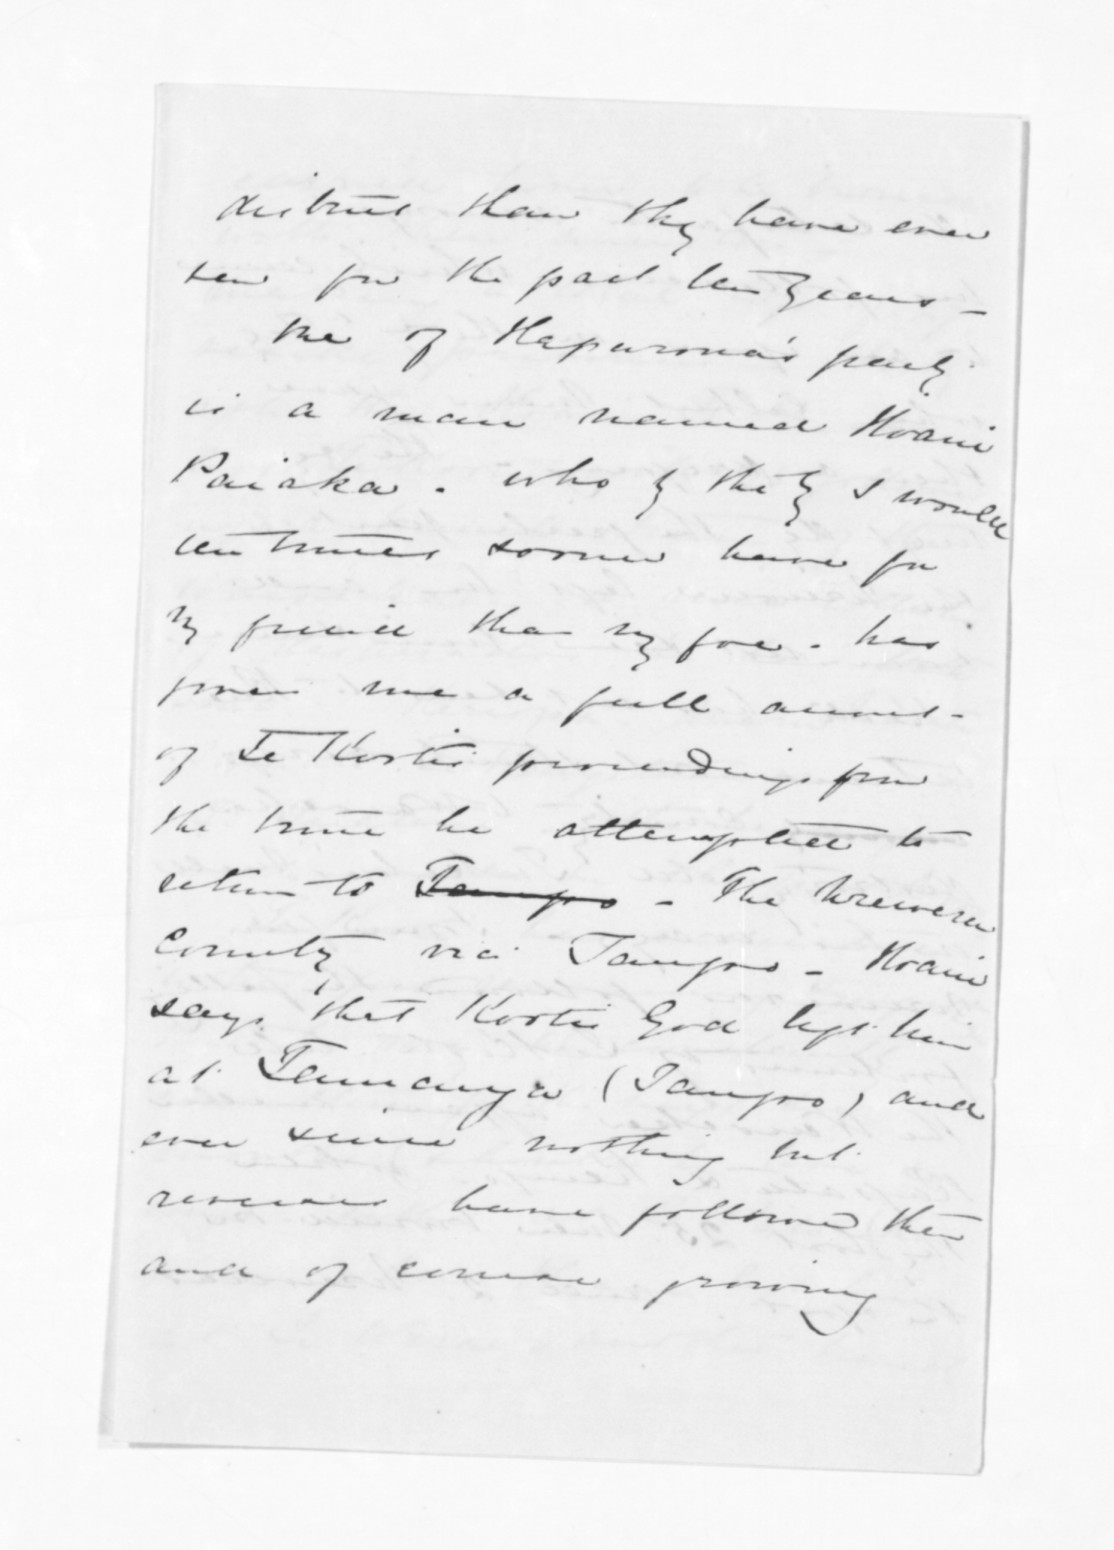 district than they have ever
been for the past ten years –
One of Hapurona's party
is a man named Hoani
Paiaka. who by the by I would
ten times sooner have for
my friend than my foe. has
given me a full account
of Te Kooti's proceedings from
the time he attempted to
return to Taupo – The Urewera
Country via Taupo – Hoani
says that Kooti's God left him
at Tauranga (Taupo) and
ever since nothing but
reverses have followed them
and of course